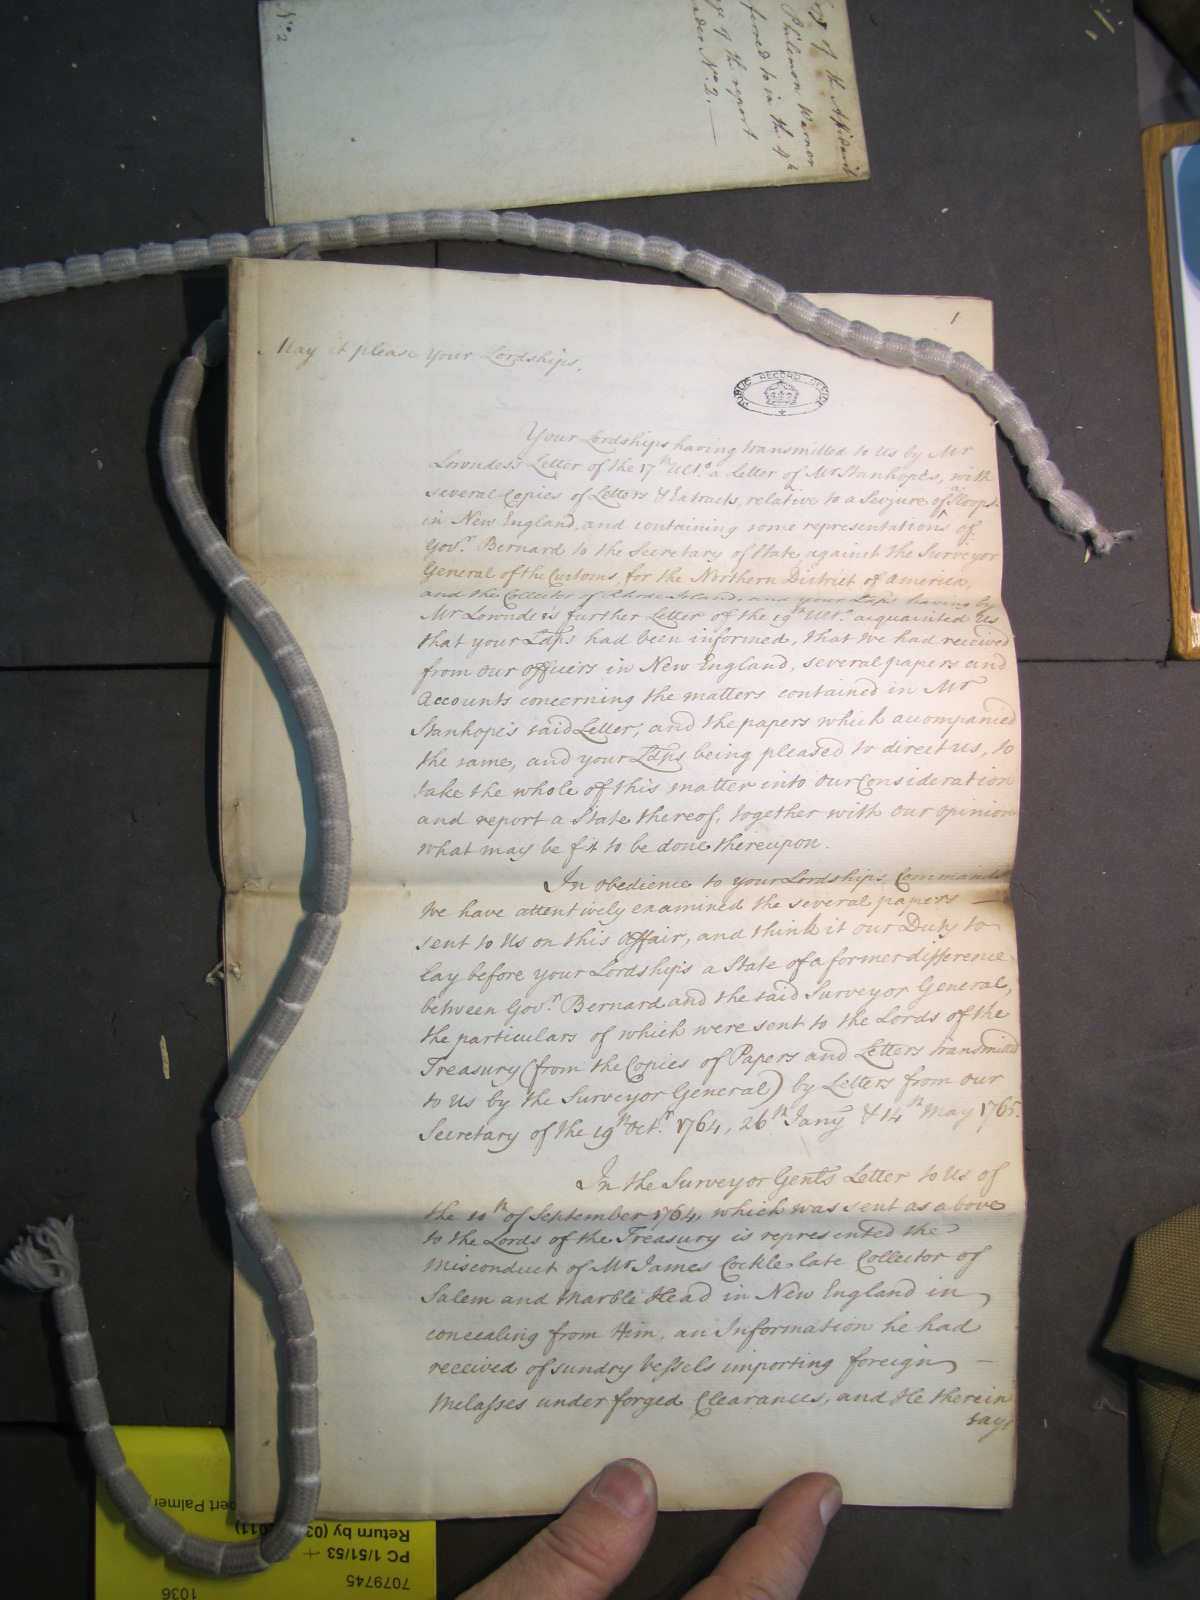 Nº. 2
Copy of the Affidavit
Philemon Warner
referred to in the
of the report
under Nº. 2. —
1
May it please your Lordships,
PUBLIC RECORD OFFICE
Your Lordships having transmitted to Us by Mr
Lowndes's Letter of the 17th Ulto. a Letter of Mr Stanhope's, with
several Copies of Letters & Extracts, relative to a Seizure of a Sloops
in New England, and containing some representations of
Govr. Bernard to the Secretary of State against the Surveyor
General of the Customs, for the Northern District of America,
and the Collector of Rhode Island, and your Ldps having by
Mr Lowndes's further Letter of the 19th Ulto. acquainted Us
that your Ldps had been informed, that We had received
from our Officers in New England, several papers and
Accounts concerning the matters contained in Mr
Stanhope's said Letter, and the papers which accompanied
the same, and your Ldps being pleased to direct us, to
take the whole of this matter into our Consideration
and report a State thereof, together with our opinion
what may be fit to be done thereupon.
In obedience to your Lordships Commands
We have attentively examined the several papers —
sent to Us on this Affair, and think it our Duty to
lay before your Lordships a State of a former difference
between Govr. Bernard and the said Surveyor General,
the particulars of which were sent to the Lords of the
Treasury (from the Copies of Papers and Letters transmitted
to Us by the Surveyor General) by Letters from our
Secretary of the 19th Octr. 1764, 26th Jany & 14th May 1765.
In the Surveyor Genl's Letter to Us of
the 10th of September 1764, which was sent as above
to the Lords of the Treasury is represented the
Misconduct of Mr James Cockle late Collector of
Salem and Marble Head in New England in
concealing from Him, an Information he had
received of sundry Vessels importing foreign —
Melasses under forged Clearances, and He therein
says
1036
7079745
PC 1/51/53
Return by (03
2011)
bert Palmer